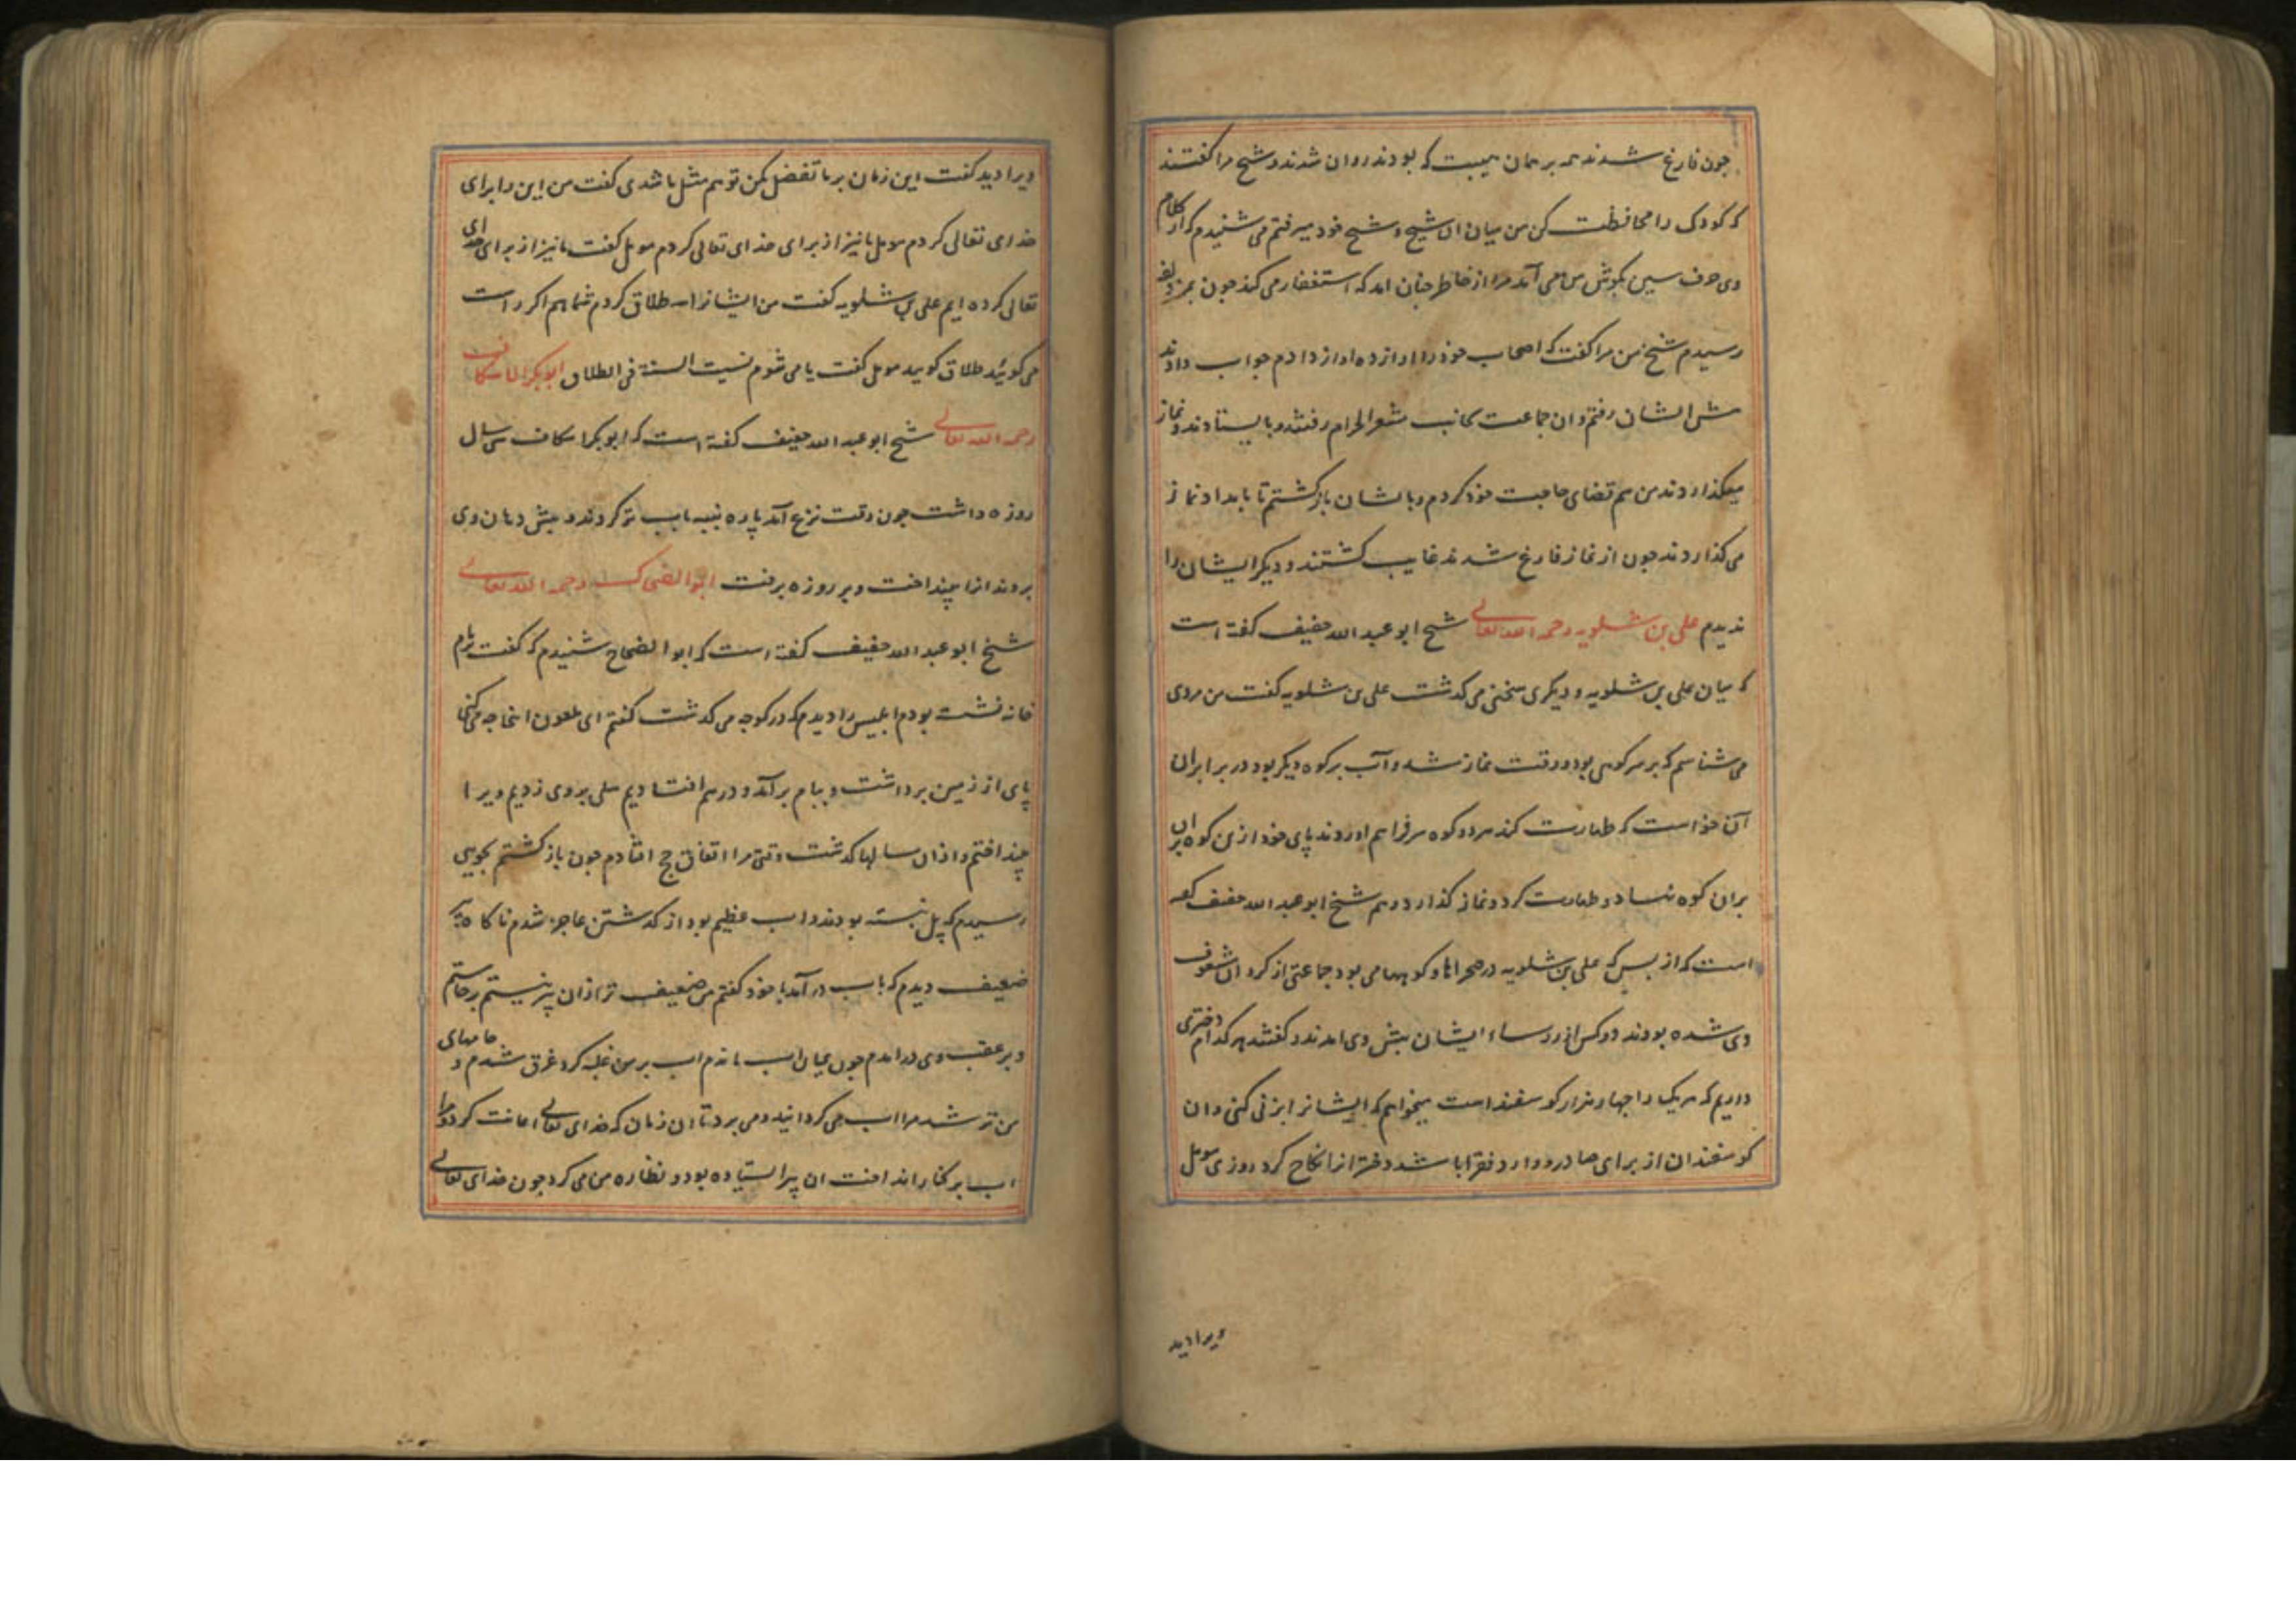 چون فارغ شدند همه بر همان هیبت که بودند روان شدند و شیخ مرا گفتند
که کودک را محافظت کن من میان ان شیخ و شیخ خود میرفتم می شنیدم که از کلام
وی حرف سین بگوش من می آمد مرا از خاطر چنان امد که استغفار می کند چون بمزدلفه
رسیدم شیخ من مرا گفت که اصحاب خود را اواز ده اواز دادم جواب دادند
پیش ایشان رفتم و ان جماعت بجانب مشعر الحرام رفتند و بایستادند و نماز
میگذاردند من هم قضای حاجت خود کردم و با ایشان بازگشتم تا بامداد نماز
می گذاردند چون از نماز فارغ شدند غایب گشتند و دیگر ایشان را
ندیدم علی بن شلویه رحمه الله تعالی شیخ ابو عبد الله خفیف گفته است
که میان علی بن شلویه و دیگری سخنی می گذشت علی بن شلویه گفت من مردی
می شناسم که بر سر کوهی بود و وقت نماز شد و آب بر کوه دیگر بود در برابر ان
آن خواست که طهارت کند هر دو کوه سر فراهم اوردند پای خود ازین کوه بران
بران کوه نهاد و طهارت کرد و نماز گذارد و هم شیخ ابو عبد الله خفیف گفته
است که از بس که علی بن شلویه در صحراها و کوهها می بود جماعتی از کردان مشعوف
وی شده بودند دو کس از روساء ایشان پیش وی امدند و گفتند هر کدام دختری
داریم که هر یک را چهار هزار گوسفند است میخواهم که ایشانرا بزنی کنی و ان
گوسفندان از برای صادر و وارد فقرا باشد دختر انرا نکاح کرد روزی مومل
ویرا دید
ویرا دید گفت این زمان بر ما تفضل مکن تو هم مثل ما شدی گفت من این را برای
خدای تعالی کردم مومل ما نیز از برای خدای تعالی کردم مومل گفت ما نیز از برای خدای
تعالی کرده ایم علی بن شلویه گفت من ایشانرا سه طلاق کردم شما هم اگر راست
می گوئید طلاق گویید مومل گفت یا می شوم نسیت السنة فی الطلاق ابو بکر الاسکاف
رحمه الله تعالی شیخ ابو عبد الله خفیف گفته است که ابو بکر اسکاف سی سال
روزه داشت چون وقت نزع آمد پاره پنبه باب تر کردند و پیش دهان وی
بردند انرا بینداخت و بر روزه برفت ابو الضحاک رحمه الله تعالی
شیخ ابو عبد الله خفیف گفته است که ابو الضحاک شنیدم که گفت بر بام
خانه نشسته بودم ابلیس را دیدم که در کوچه می گذشت گفتم ای ملعون اینجا چه می کنی
پای از زمین برداشت و ببام بر آمد و در هم افتادیم سلی بروی زدیم ویرا
بینداختم و از ان سالها گذشت وقتی مرا اتفاق حج افتادم چون بازگشتم بجویی
رسیدم که پل نبسته بودند و اب عظیم بود از گذشتن عاجز شدم ناگاه پیر
ضعیف دیدم که باب در آمد با خود گفتم من ضعیف تر از ان پیر نیستم برخاستم
و بر عقب وی درامدم چون بمیان اب ماندم اب بر من غلبه کرد غرق شدم و جامهای
من تر شد مرا اب می گردانید و می برد تا ان زمان که خدای تعالی اعانت کرد و مرا
اب بر کنار انداخت ان پیر ایستاده بود و نظاره من می کرد چون خدای تعالی